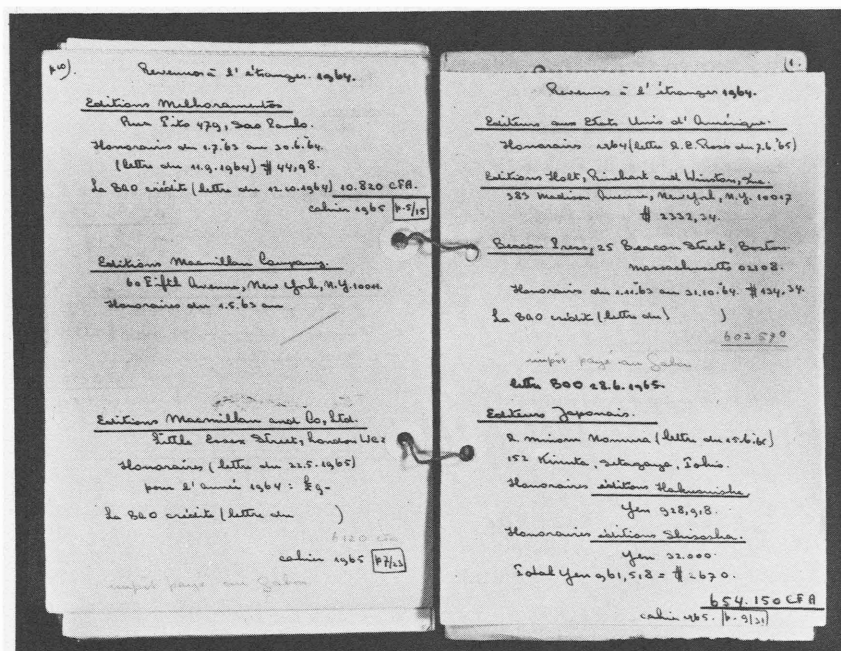 p10).
Revenus à l'étranger. 1964.
Editions Melhoramentos
Rua Tito 479, Sao Paulo.
Honoraires du 1.7.'63 au 30.6.'64.
(lettre du 11.9.1964) $ 44,98.
La BAO crédit (lettre du 12.10.1964) 10.820 CFA.
cahier 1965 p.5/15
Editions Macmillan Company.
60 Fifth Avenue, New York, N.Y. 10011.
Honoraires du 1.5.'63 au
Editions Macmillan and Co, Ltd.
Little Essex Street, London WC2
Honoraires (lettre du 22.5.1965)
pour l'année 1964: £9-
La BAO crédit (lettre du )
6120 cfa
cahier 1965 p7/23
impôt payé au Gabon
Revenus à l'étranger 1964.
Editeurs aux Etats Unis d'Amérique.
Honoraires 1964 (lettre Ross du 7.6.'65)
Editions Holt, Rinehart and Winston, Inc.
383 Madison Avenue, New York, N.Y. 10017
$ 2332,34.
Beacon Press, 25 Beacon Street, Boston
Massachusetts 02108.
Honoraires du 1.11.'63 au 31.10.'64. $134,34.
La BAO crédit (lettre du )
impôt payé au Gabon
lettre BAO 28.6.1965.
Editeurs Japonais.
Minoru Nomura (lettre du 15.6.'65)
152 Kinuta, Setagaya, Tokio.
Honoraires éditions Hakusuisha,
Yen 928,918.
Honoraires éditions Shisosha.
Yen 32.000.
Total Yen 961,518 = $ 2670.
654.150 CFA
cahier 1965. p.9/31